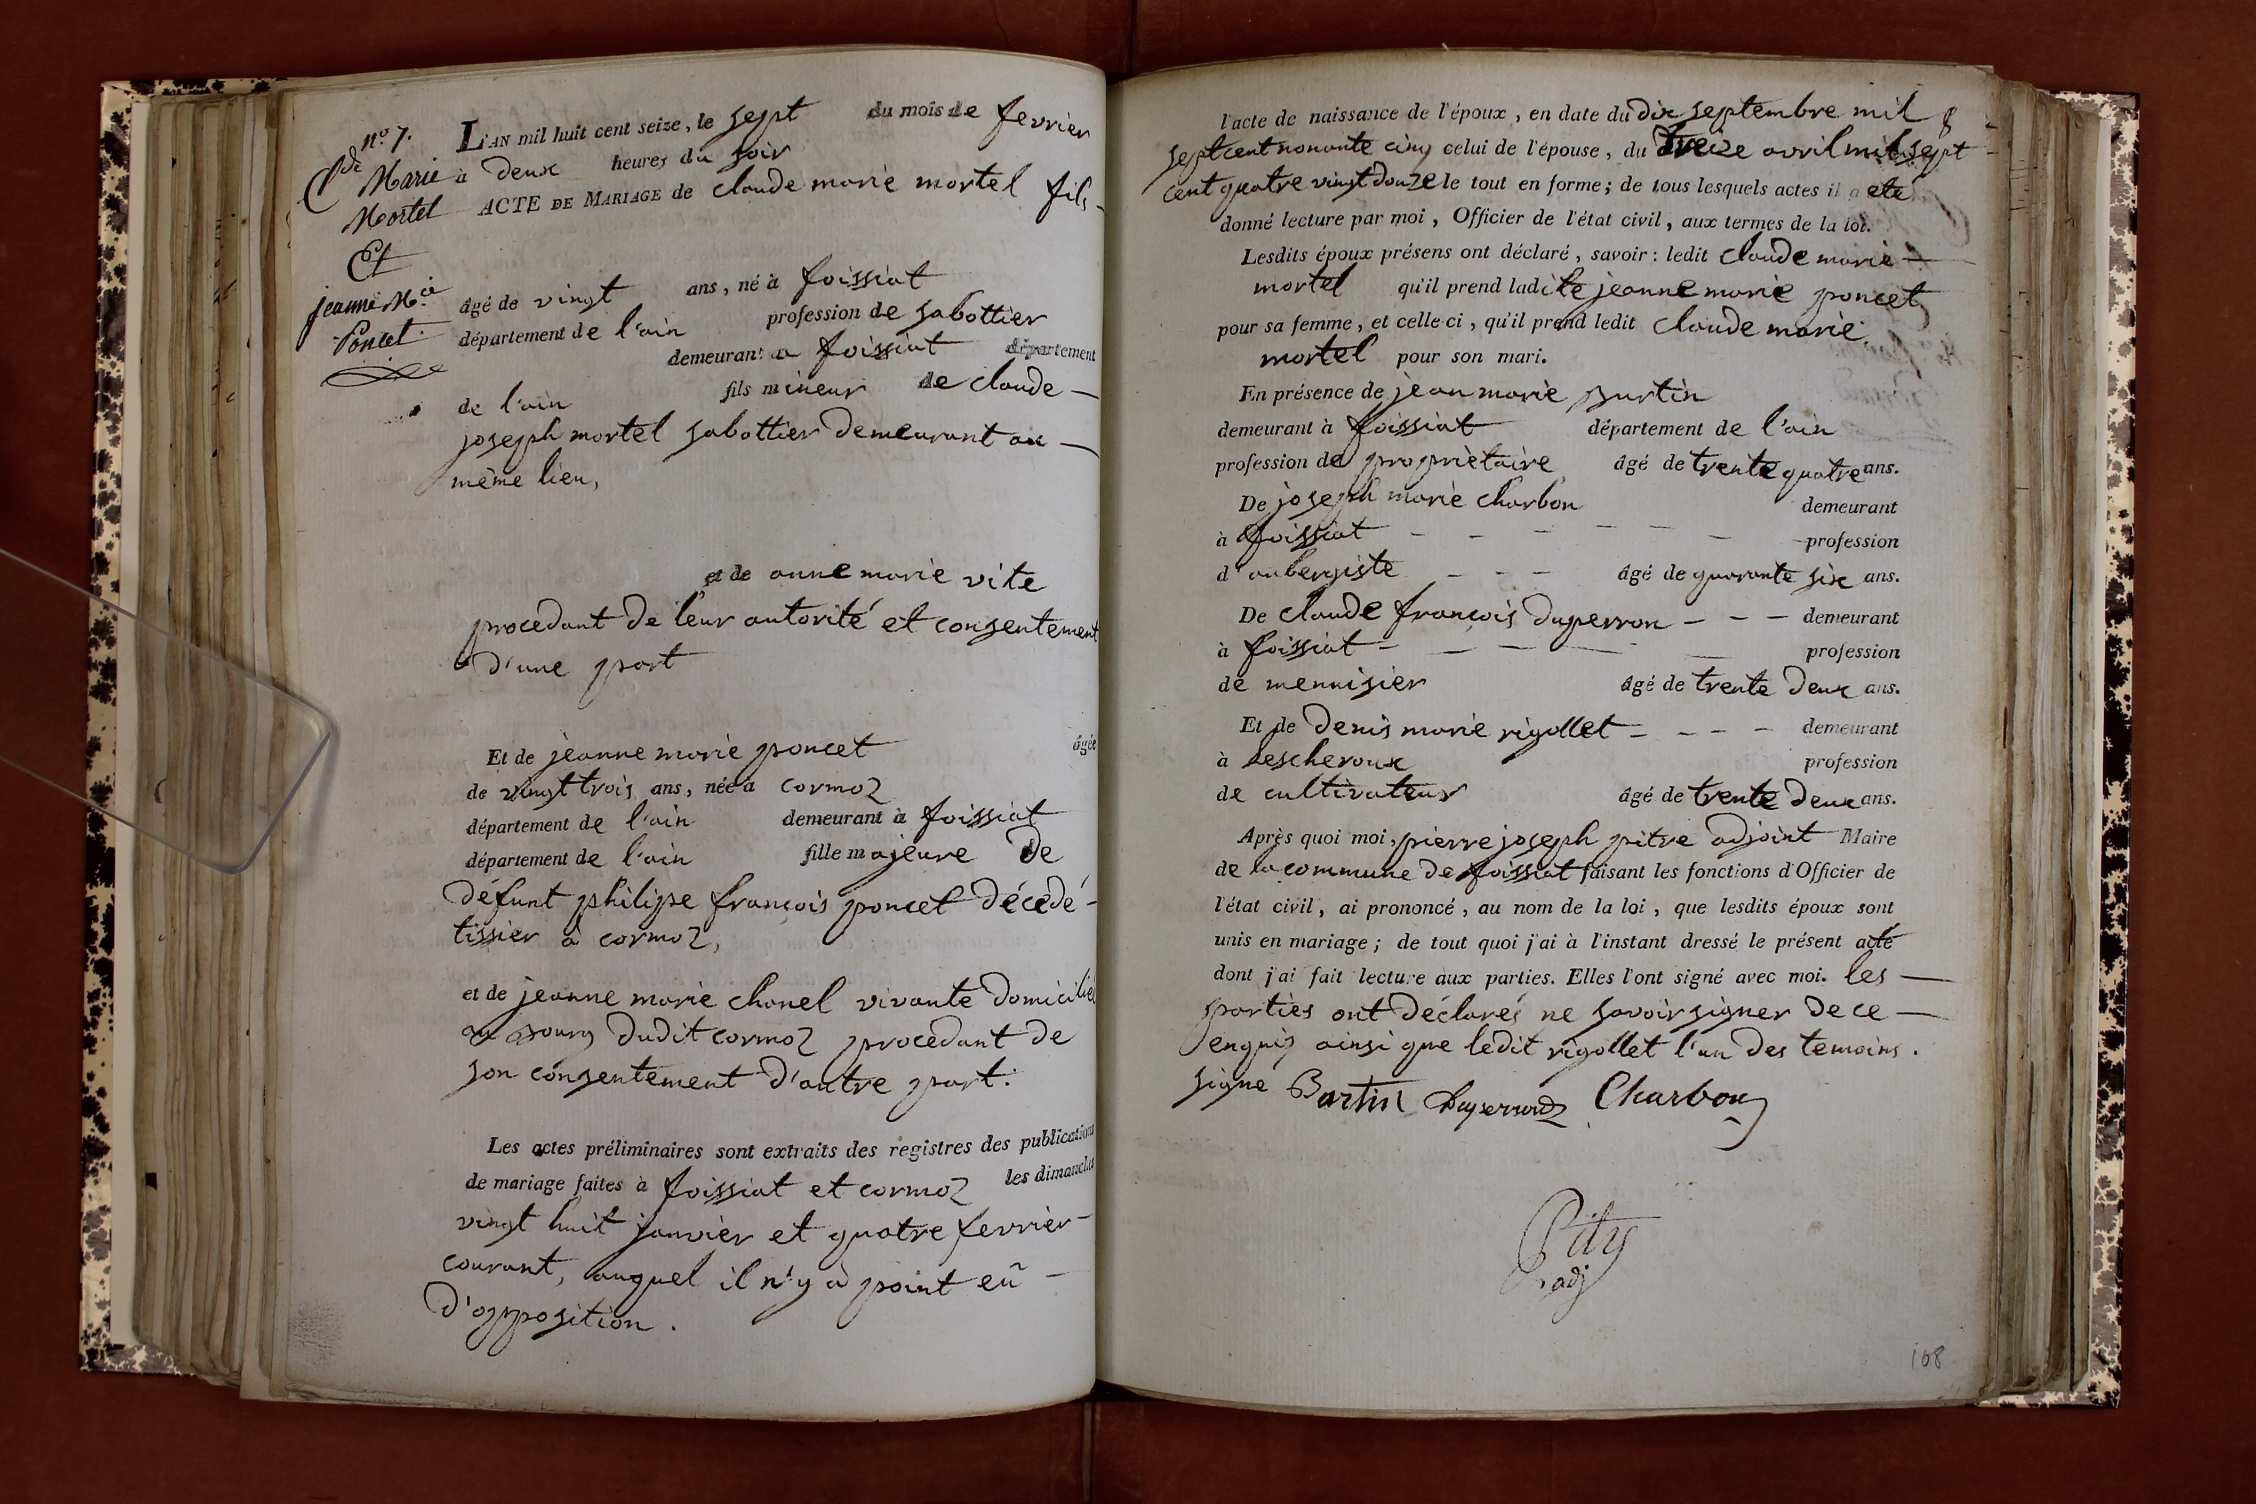 nº 7.
Cde
Marie
Mortel
Et
jeanne Mie
Poncet
L'AN mil huit cent seize, le sept du mois de fevrier
à deux heures du soir
ACTE DE MARIAGE de claude marie mortel fils
âgé de vingt ans, né à foissiat
département de l'ain profession de sabottier
demeurant a foissiat département
de l'ain fils mineur de claude
joseph mortel sabottier demeurant au
même lieu,
et de anne marie vite
procedant de leur autorité et consentement
d'une part
Et de jeanne marie poncet âgée
de vingt trois ans, née à cormoz
département de l'ain demeurant à foissiat
département de l'ain fille majeure de
défunt philipe françois poncet décedé
tissier à cormoz,
et de jeanne marie chanel vivante domiciliée
au bourg dudit cormoz procedant de
son consentement d'autre part.
Les actes préliminaires sont extraits des registres des publications
de mariage faites à foissiat et cormoz les dimanches
vingt huit janvier et quatre fevrier
courant, auquel il n'y a point eü
d'opposition.
l'acte de naissance de l'époux, en date du dix septembre mil
sept cent nonante cinq celui de l'épouse, du treize avril mil sept
cent quatre vingt douze le tout en forme; de tous lesquels actes il a eté
donné lecture par moi, Officier de l'état civil, aux termes de la loi.
Lesdits époux présens ont déclaré, savoir: ledit claude marie
mortel qu'il prend ladite jeanne marie poncet
pour sa femme, et celle-ci, qu'il prend ledit claude marie
mortel pour son mari.
En présence de jean marie burtin
demeurant à foissiat département de l'ain
profession de propriètaire âgé de trente quatre ans.
De joseph marie charbon demeurant
à foissiat profession
d'aubergiste âgé de quarante six ans.
De claude françois duperron demeurant
à foissiat profession
de menuisier âgé de trente deux ans.
Et de denis marie rigollet demeurant
à Lescheroux profession
de cultivateur âgé de trente deux ans.
Après quoi moi, pierre joseph pitre adjoint Maire
de la commune de foissiat faisant les fonctions d'Officier de
l'état civil, ai prononcé, au nom de la loi, que lesdits époux sont
unis en mariage; de tout quoi j'ai à l'instant dressé le présent acte
dont j'ai fait lecture aux parties. Elles l'ont signé avec moi. les
parties ont déclarés ne savoir signer de ce
enquis ainsi que ledit rigollet l'un des temoins.
signé Burtin Duperron Charbon
adj
108